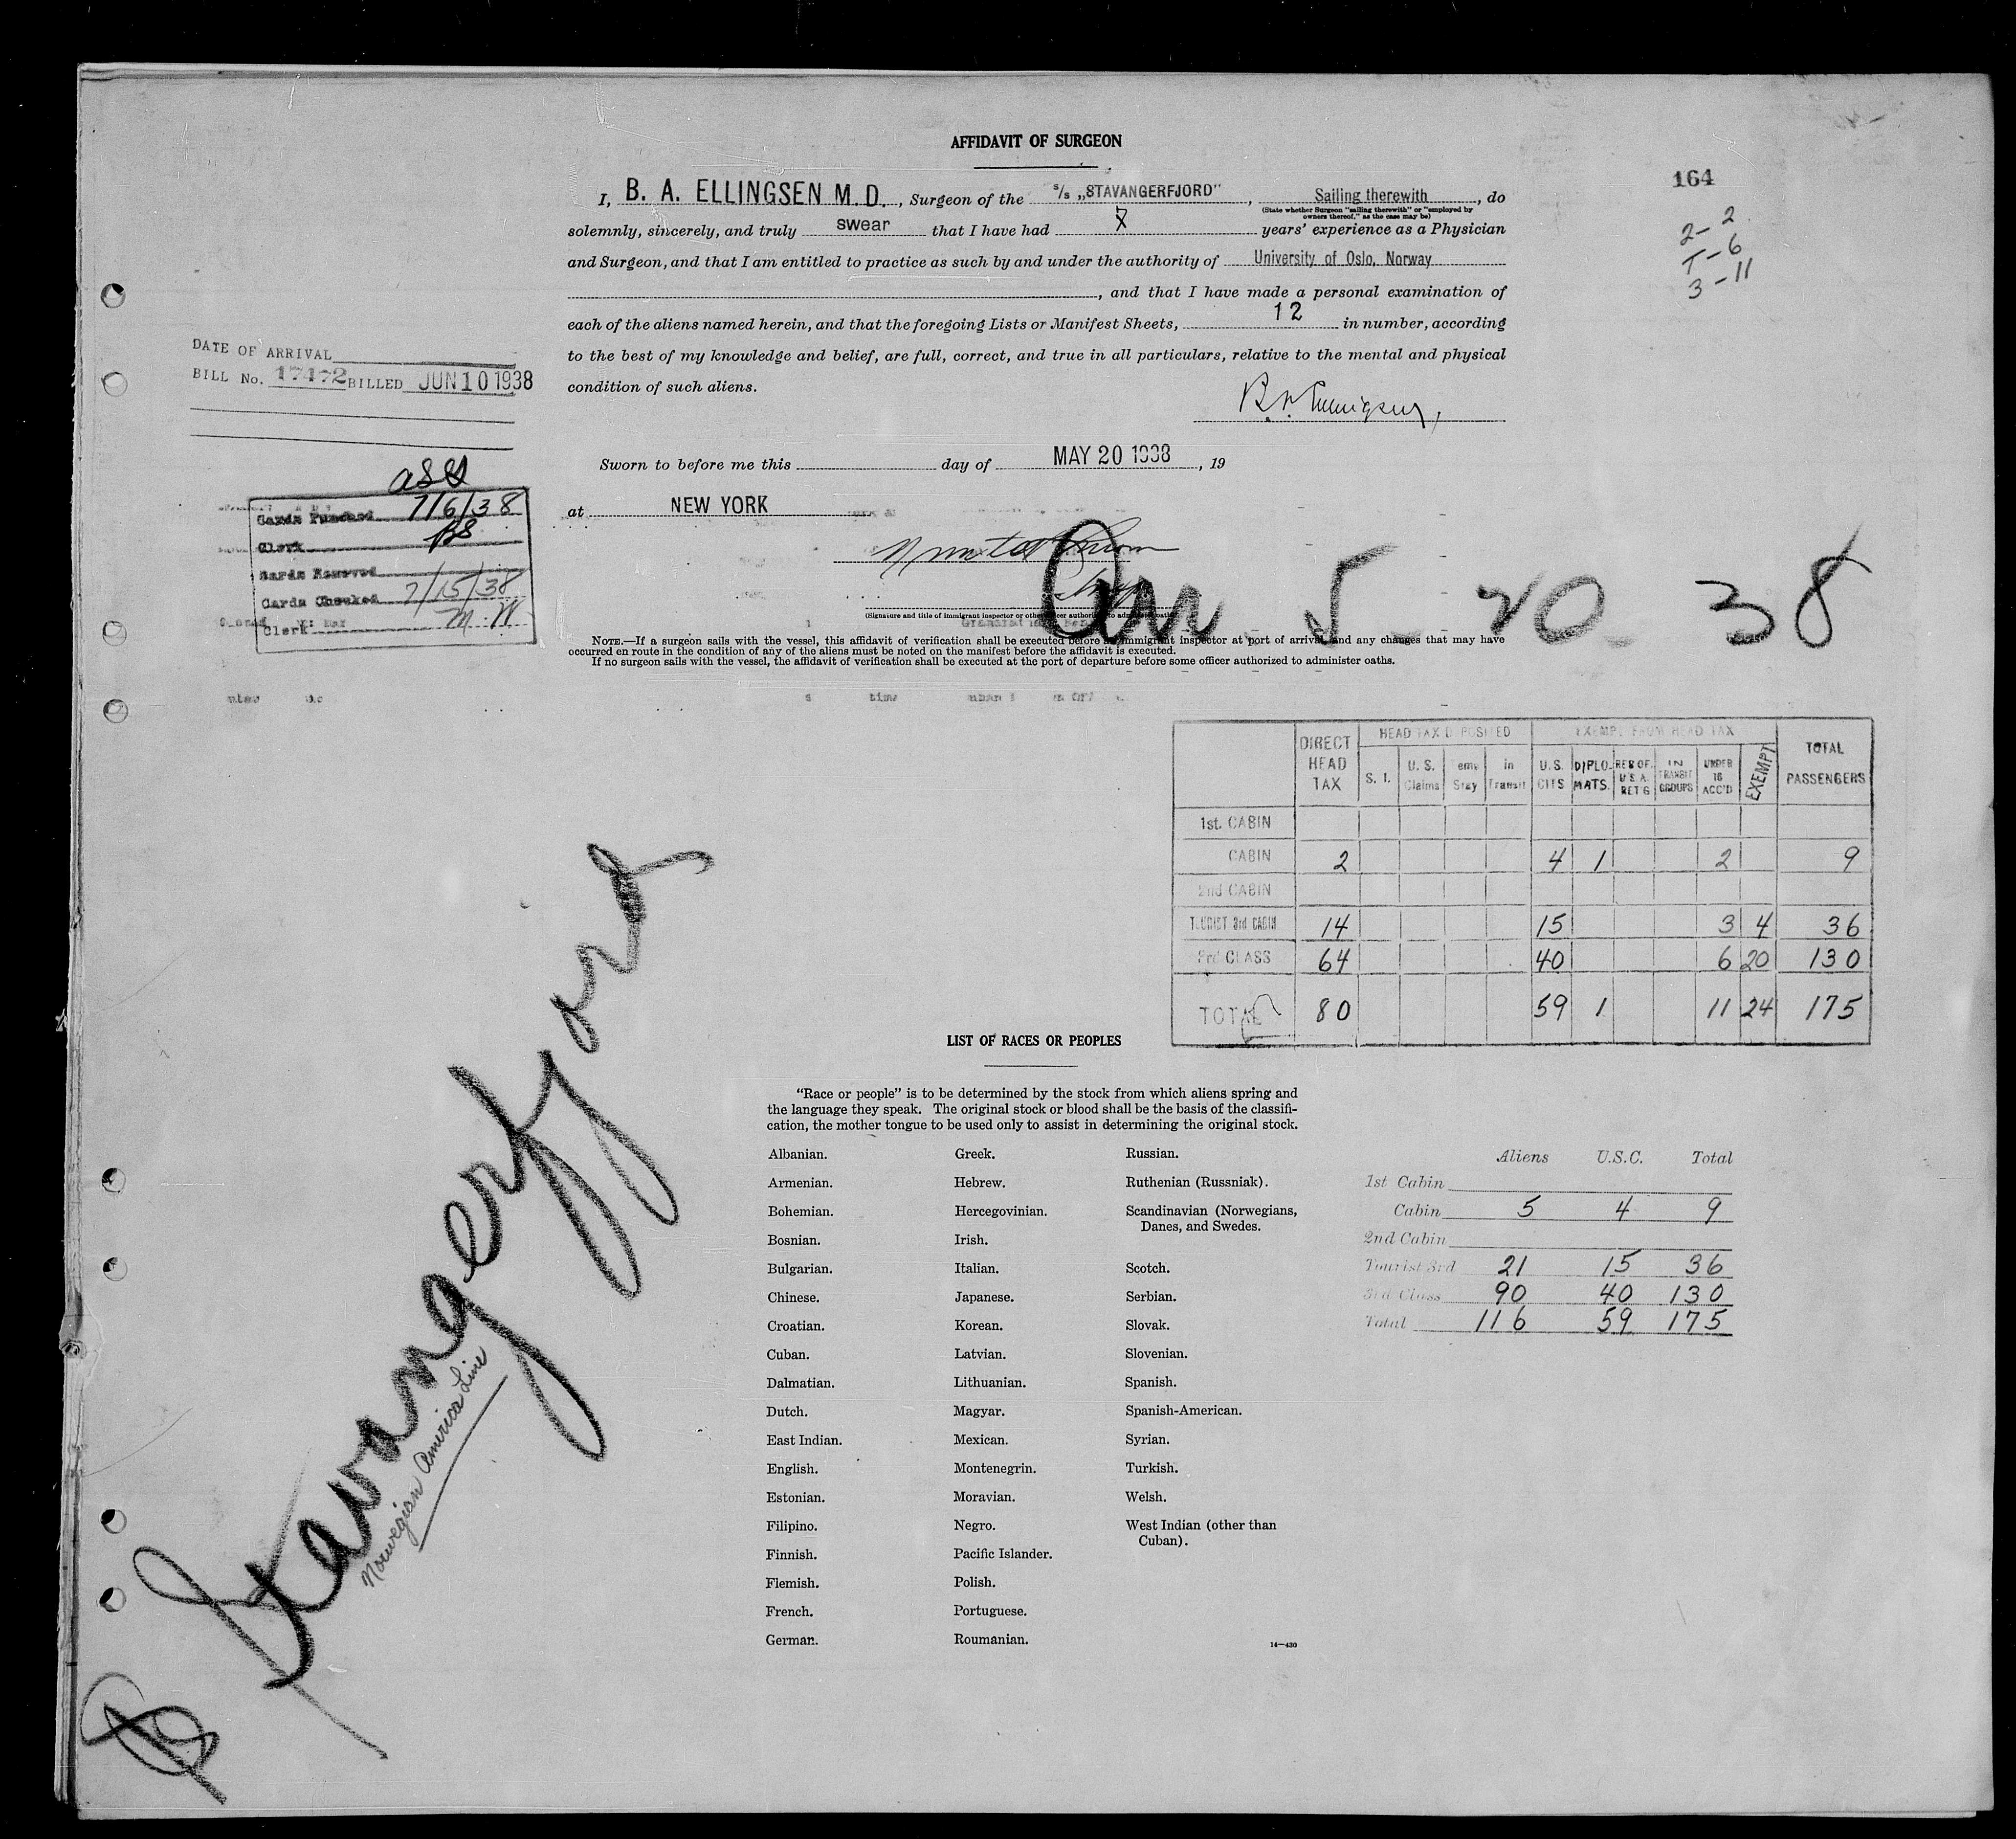 AFFIDAVIT OF SURGEON
164
I, B. A. ELLINGSEN M.D., Surgeon of the s/s „STAVANGERFJORD”, Sailing therewith, do
(State whether Surgeon “sailing therewith” or “employed by
owners thereof,” as the case may be)
solemnly, sincerely, and truly swear that I have had 7 years’ experience as a Physician
and Surgeon, and that I am entitled to practice as such by and under the authority of University of Oslo, Norway
, and that I have made a personal examination of
each of the aliens named herein, and that the foregoing Lists or Manifest Sheets, 12 in number, according
to the best of my knowledge and belief, are full, correct, and true in all particulars, relative to the mental and physical
condition of such aliens.
2-2
T-6
3-11
DATE OF ARRIVAL
BILL No. 17472 BILLED JUN 10 1938
Sworn to before me this day of MAY 20 1938, 19
at NEW YORK
Cards Punched 7/6/38
Clerk BS
Cards Removed
Cards Checked 7/15/38
Clerk M.W
Arr 5 20 38
(Signature and title of immigrant inspector or other officer authorized to administer oaths)
NOTE.—If a surgeon sails with the vessel, this affidavit of verification shall be executed before an immigrant inspector at port of arrival, and any changes that may have
occurred en route in the condition of any of the aliens must be noted on the manifest before the affidavit is executed.
If no surgeon sails with the vessel, the affidavit of verification shall be executed at the port of departure before some officer authorized to administer oaths.
HEAD TAX DEPOSITED EXEMPT FROM HEAD TAX
DIRECT HEAD TAX S. I. U. S. Claims Temp Stay in Transit U.S. CITS DIPLO-MATS. RES OF. U S A. RET'G IN TRANSIT GROUPS UNDER 16 ACC'D EXEMPT TOTAL PASSENGERS
1st. CABIN
CABIN 2 4 1 2 9
2nd CABIN
TOURIST 3rd CABIN 14 15 3 4 36
3rd CLASS 64 40 6 20 130
TOTAL 80 59 1 11 24 175
Stavangerfjord
Norwegian America Line
LIST OF RACES OR PEOPLES
“Race or people” is to be determined by the stock from which aliens spring and
the language they speak. The original stock or blood shall be the basis of the classifi-
cation, the mother tongue to be used only to assist in determining the original stock.
Albanian.
Armenian.
Bohemian.
Bosnian.
Bulgarian.
Chinese.
Croatian.
Cuban.
Dalmatian.
Dutch.
East Indian.
English.
Estonian.
Filipino.
Finnish.
Flemish.
French.
German.
Greek.
Hebrew.
Hercegovinian.
Irish.
Italian.
Japanese.
Korean.
Latvian.
Lithuanian.
Magyar.
Mexican.
Montenegrin.
Moravian.
Negro.
Pacific Islander.
Polish.
Portuguese.
Roumanian.
Russian.
Ruthenian (Russniak).
Scandinavian (Norwegians,
Danes, and Swedes.
Scotch.
Serbian.
Slovak.
Slovenian.
Spanish.
Spanish-American.
Syrian.
Turkish.
Welsh.
West Indian (other than
Cuban).
14—430
Aliens U.S.C. Total
1st Cabin
Cabin 5 4 9
2nd Cabin
Tourist 3rd 21 15 36
3rd Class 90 40 130
Total 116 59 175